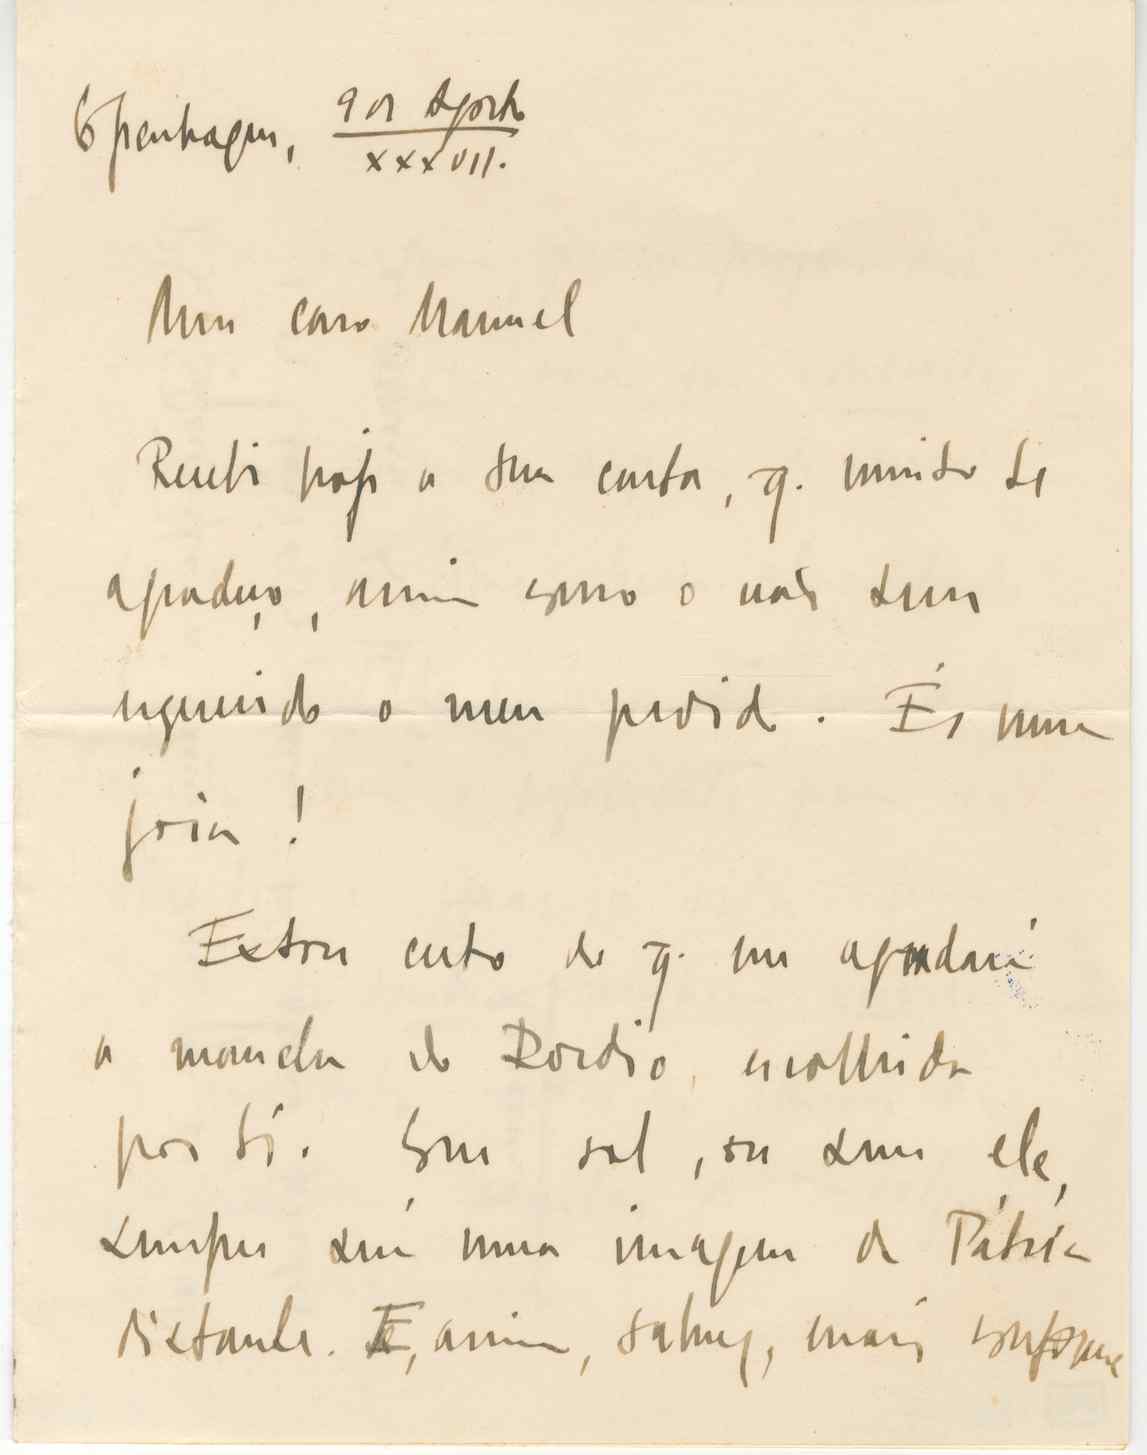 Copenhagen, 9 de Agosto
XXXVII.
Meu caro Manuel
Recebi hoje a sua carta, q. muito te
agradeço, assim como o não teres
esquecido o meu pedido. És uma
joia!
Estou certo de q. me agradará
a mancha do Dordio, escolhida
por ti. Com sol, ou sem ele,
sempre será uma imagem da Pátria
distante. E, assim, talvez, mais conforme